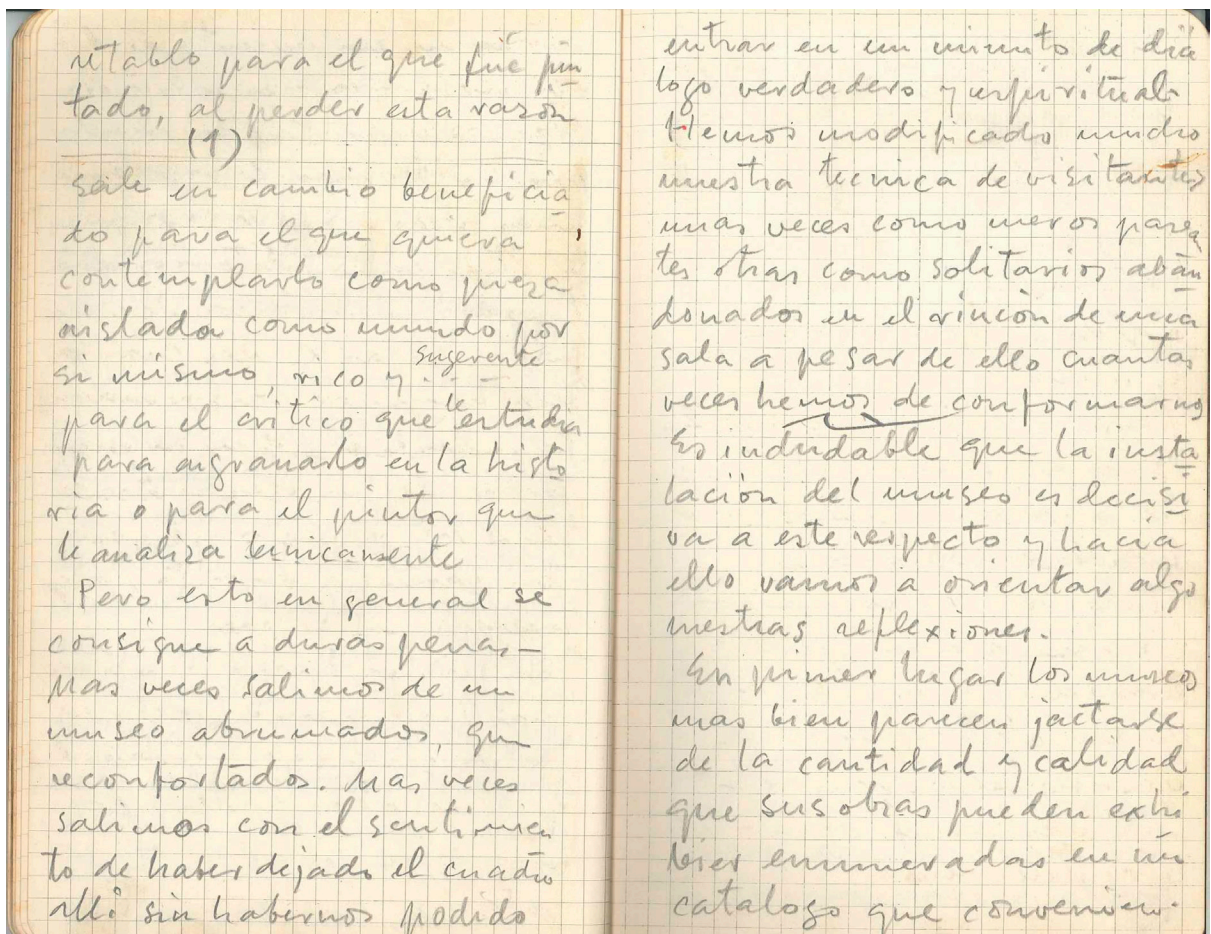 retablo para el que fué pin
tado, al perder esta razón
(1)
sale en cambio beneficia
do para el que quiera
contemplarlo como pieza
aislada como mundo por
si mismo, rico y sugerente
para el critico que le estudia
para engranarlo en la histo
ria o para el pintor que
le analiza tecnicamente
Pero esto en general se
consigue a duras penas—
Mas veces salimos de un
museo abrumados, que
reconfortados. Mas veces
salimos con el sentimien
to de haber dejado el cuadro
alli sin habernos podido
entrar en un minuto de diá
logo verdadero y espiritual.
Hemos modificado mucho
nuestra tecnica de visitantes
unas veces como meros pasean
tes otras como solitarios aban
donados en el rincón de una
sala a pesar de ello cuantas
veces hemos de conformarnos
Es indudable que la insta
lación del museo es decisi
va a este respecto y hacia
ello vamos a orientar algo
nuestras reflexiones.
En primer lugar los museos
mas bien parecen jactarse
de la cantidad y calidad
que sus obras pueden exhi
bier enumeradas en un
catalogo que convenien-